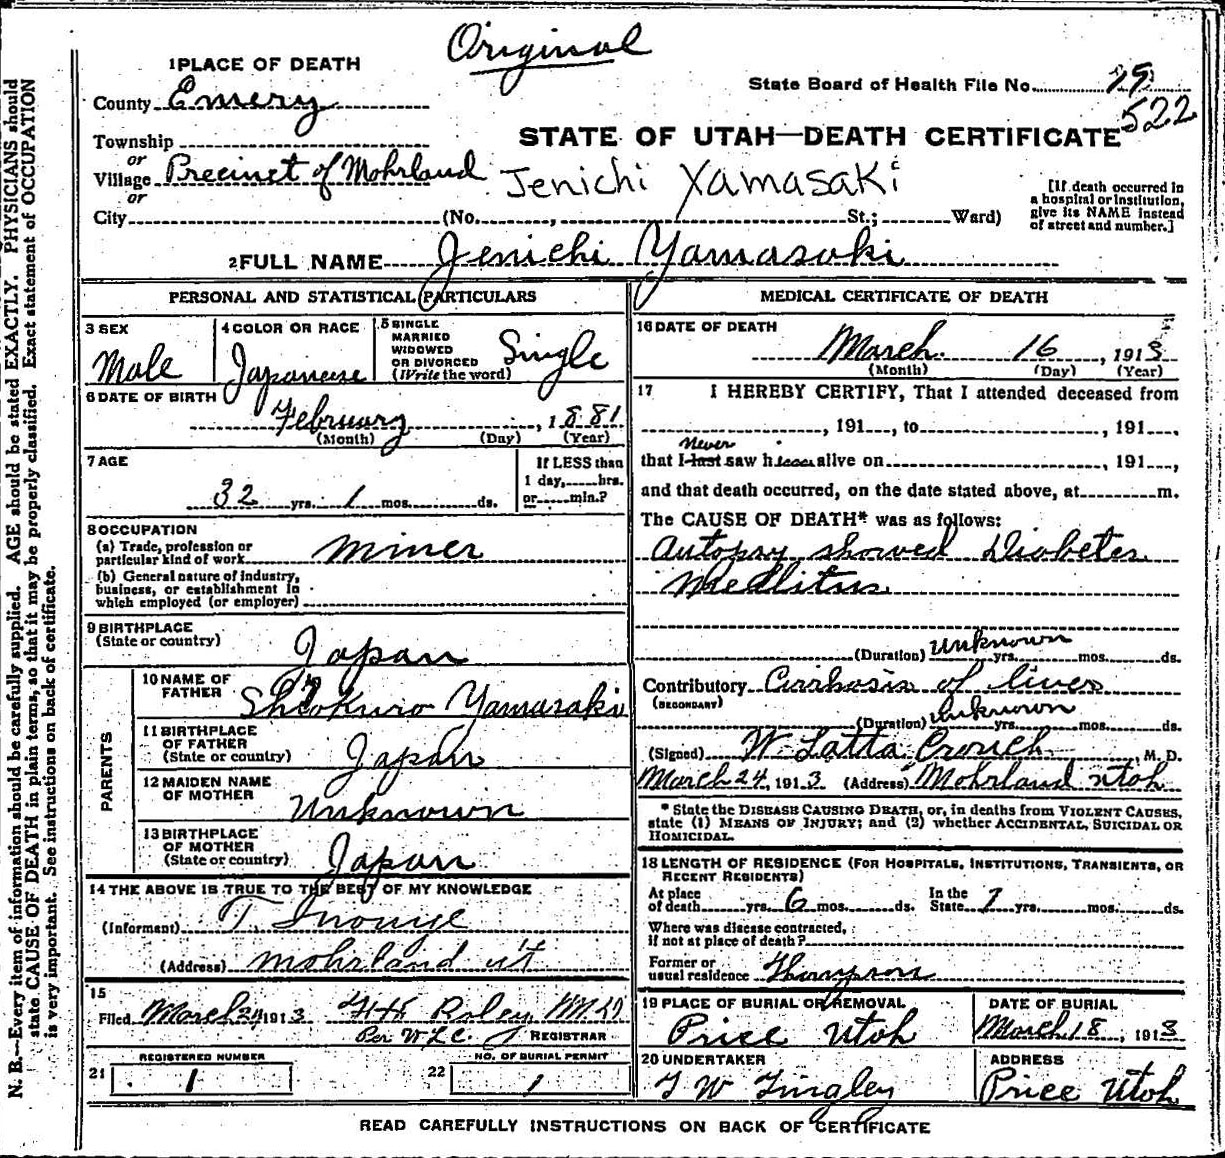 Original
1 PLACE OF DEATH
State Board of Health File No. 19
522
County Emery
STATE OF UTAH—DEATH CERTIFICATE
Township
or
Village Precinct of Mohrland
Jenichi Yamasaki
or
City (No. , St.; Ward)
[If death occurred in
a hospital or institution,
give its NAME instead
of street and number.]
2 FULL NAME Jenichi Yamasaki
PERSONAL AND STATISTICAL PARTICULARS
3 SEX
Male
4 COLOR OR RACE
Japanese
5 SINGLE
MARRIED
WIDOWED
OR DIVORCED
(Write the word)
Single
6 DATE OF BIRTH
February , 1881
(Month) (Day) (Year)
7 AGE
32 yrs. 1 mos. ds.
If LESS than
1 day, hrs.
or min.?
8 OCCUPATION
(a) Trade, profession or
particular kind of work miner
(b) General nature of industry,
business, or establishment in
which employed (or employer)
9 BIRTHPLACE
(State or country)
Japan
PARENTS
10 NAME OF
FATHER
Yamasaki
11 BIRTHPLACE
OF FATHER
(State or country)
Japan
12 MAIDEN NAME
OF MOTHER
Unknown
13 BIRTHPLACE
OF MOTHER
(State or country)
Japan
14 THE ABOVE IS TRUE TO THE BEST OF MY KNOWLEDGE
(Informant) T. Inouye
(Address) Mohrland ut
15
Filed March 24, 1913
Per W L C. REGISTRAR
REGISTERED NUMBER
21 1
NO. OF BURIAL PERMIT
22 1
MEDICAL CERTIFICATE OF DEATH
16 DATE OF DEATH
March 16 , 1913
(Month) (Day) (Year)
17 I HEREBY CERTIFY, That I attended deceased from
, 191 , to , 191 ,
never
that I last saw h alive on , 191 ,
and that death occurred, on the date stated above, at m.
The CAUSE OF DEATH* was as follows:
Autopsy showed Diabetes
Medlitus
(Duration) unknown yrs. mos. ds.
Contributory Cirrhosis of liver
(SECONDARY)
(Duration) Unknown yrs. mos. ds.
(Signed) W Latta Crouch , M. D.
March 24, 1913 (Address) Mohrland Utah
* State the DISEASE CAUSING DEATH, or, in deaths from VIOLENT CAUSES,
state (1) MEANS OF INJURY; and (2) whether ACCIDENTAL, SUICIDAL OR
HOMICIDAL.
18 LENGTH OF RESIDENCE (FOR HOSPITALS, INSTITUTIONS, TRANSIENTS, OR
RECENT RESIDENTS)
At place
of death yrs. 6 mos. ds.
In the
State 7 yrs. mos. ds.
Where was disease contracted,
if not at place of death?
Former or
usual residence Thompson
19 PLACE OF BURIAL OR REMOVAL
Price Utah
DATE OF BURIAL
March 18, 1913
20 UNDERTAKER
J W Tingley
ADDRESS
Price Utah
READ CAREFULLY INSTRUCTIONS ON BACK OF CERTIFICATE
N. B.—Every item of information should be carefully supplied. AGE should be stated EXACTLY. PHYSICIANS should
state CAUSE OF DEATH in plain terms, so that it may be properly classified. Exact statement of OCCUPATION
is very important. See instructions on back of certificate.